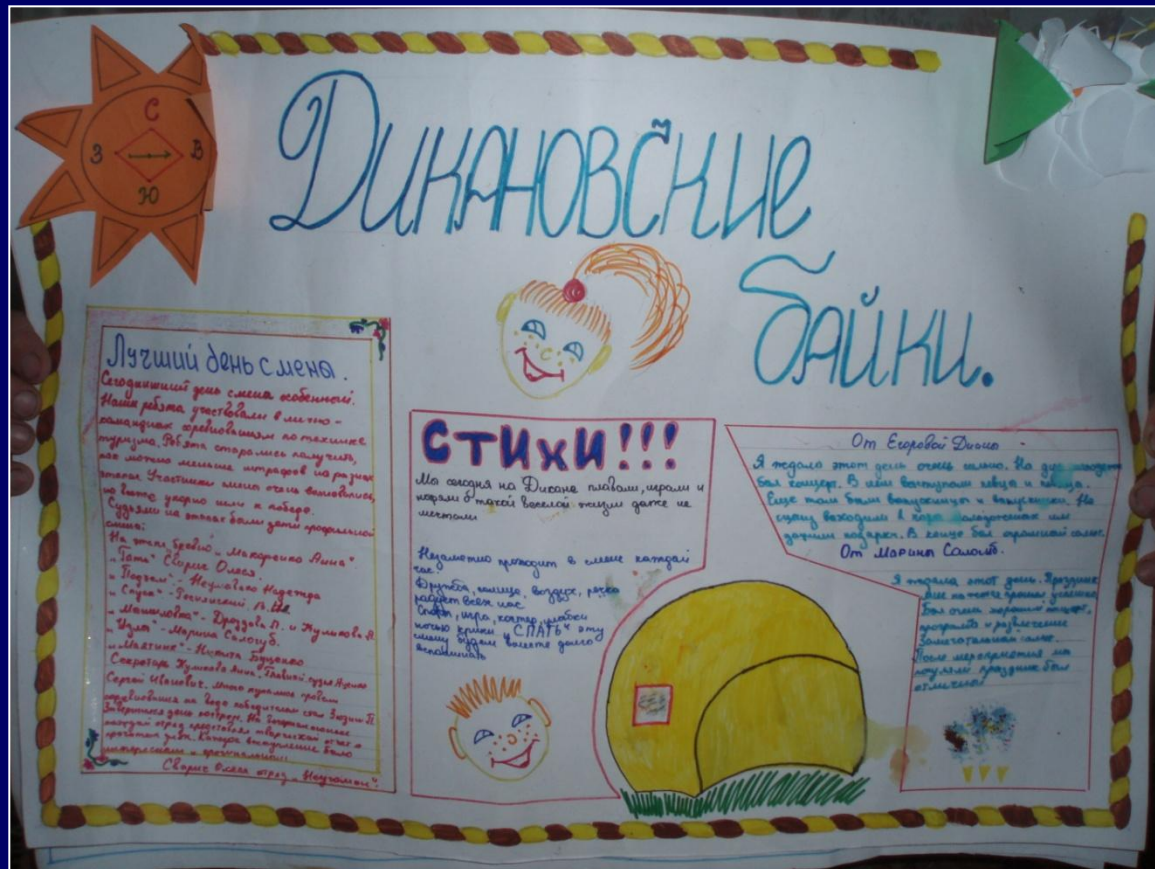 С
З
В
Ю
Дикановские
байки.
Лучший день смены.
Сегодняшний день смены особенный.
Наши ребята участвовали в лично-
командных соревнованиям по технике
туризма. Ребята старались получить,
как можно меньше штрафов на разных
этапах. Участники смены очень волновались,
но упорно шли к победе.
Судьями на этапах были дети профильной
смены:
На этап, бревно" "Макаренко Анна".
Свирис Олеся.
Надежда
"Спуск" -
- Дроздова Л. и Куликова Я.
"Узлы" - Марина Сологуб.
"Маятник" - Никита Буценко
Секретарь Куликова Анна. Главный судья
Сергей Иванович.
соревнования на воде победителем стал
Завершился день костром. На
каждый отряд представлял творческий отчет о
прожитом дне. Каждое выступление было
интересным и оригинальным!
Свирис Олеся отряд "Неугомон".
СТИХИ!!!
Мы сегодня на Дикане плавали, играли и
о такой веселой жизни даже не
мечтали
Незаметно проходит в смене каждый
час.
Дружба, солнце, воздух, речка
радует всех нас.
Споры, игра, костер, улыбки
ночью крики "СПАТЬ" эту
смену будем вместе долго
вспоминать
От Егоровой Дианы
Я ждала этот день очень сильно. На
был концерт. В нем выступали певцы и певица.
Еще там были выпускницы и выпускники. На
сцену выходили в и им
дарили подарки. В конце был огромный салют.
От Марины Сологуб.
Я ждала этот день. Праздник
мне
Был очень хороший концерт,
программа и развлечение
Замечательный салют.
После мероприятия мы
погуляли праздник был
отличный!